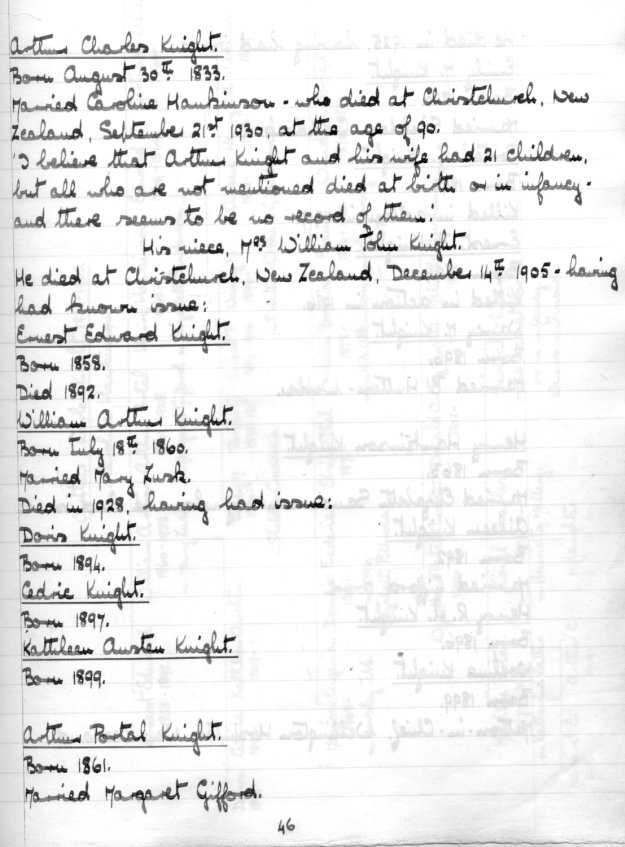 Arthur Charles Knight.
Born August 30th 1833.
Married Caroline Hankinson - who died at Christchurch, New
Zealand, September 21st 1930, at the age of 90.
'I believe that Arthur Knight and his wife had 21 children,
but all who are not mentioned died at birth or in infancy -
and there seems to be no record of them.'
His niece, Mrs William John Knight.
He died at Christchurch, New Zealand, December 14th 1905 - having
had known issue:
Ernest Edward Knight.
Born 1858.
Died 1892.
William Arthur Knight.
Born July 18th 1860.
Married Mary Lusk.
Died in 1928, having had issue:
Doris Knight.
Born 1894.
Cedric Knight.
Born 1897.
Kathleen Austen Knight.
Born 1899.
Arthur Portal Knight.
Born 1861.
Married Margaret Gifford.
46